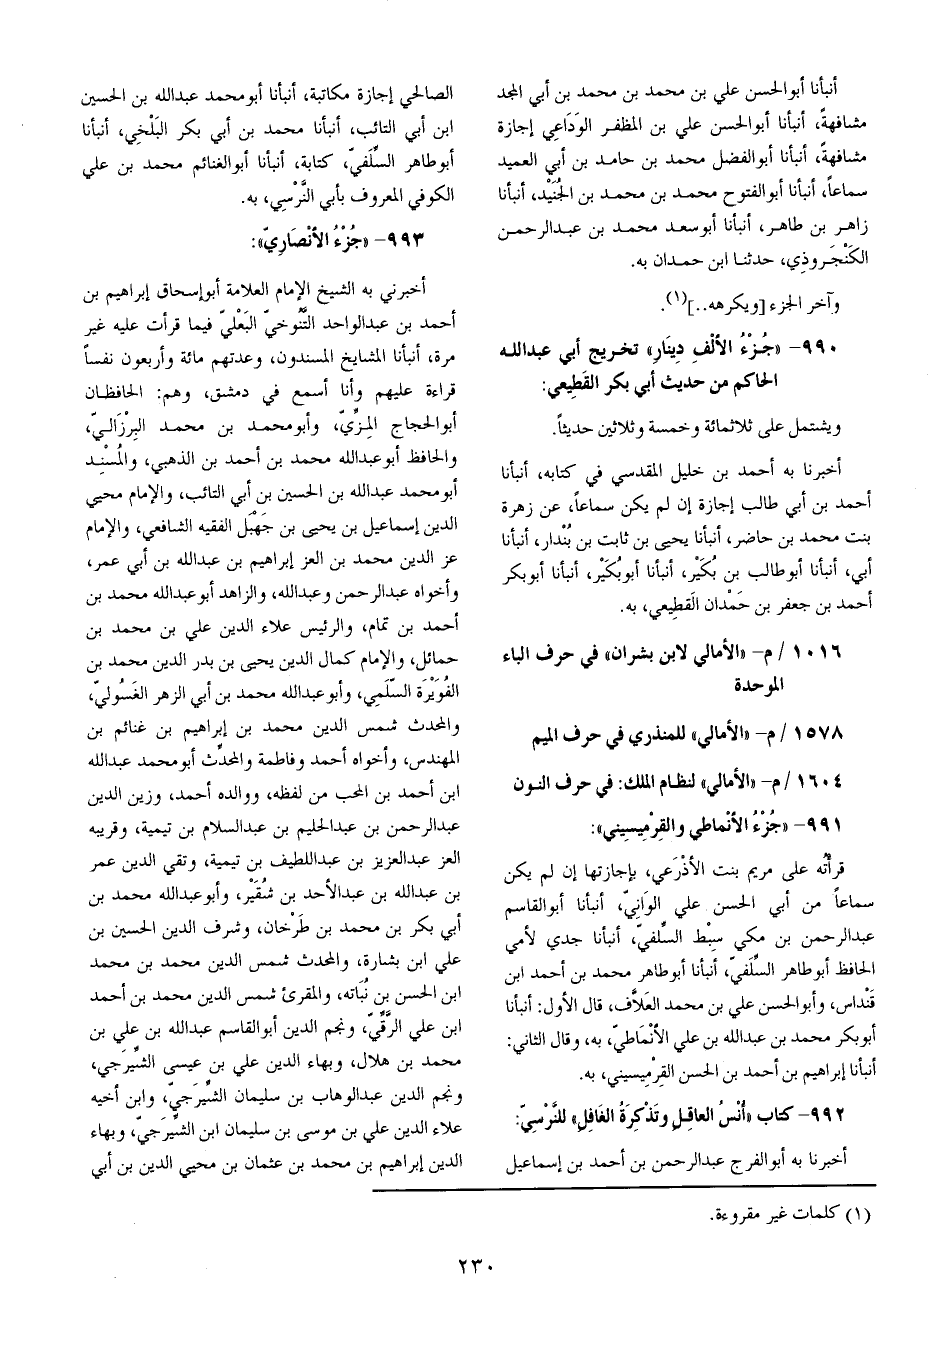 أنبأنا أبوالحسن علي بن محمد بن محمد بن أبي المجد
مشافهةً، أنبأنا أبوالحسن علي بن المظفر الوَدَاعِي إجازة
مشافهةً، أنبأنا أبوالفضل محمد بن حامد بن أبي العميد
سماعاً، أنبأنا أبوالفتوح محمد بن محمد بن الجُنَيْد، أنبأنا
زاهر بن طاهر، أنبأنا أبوسعد محمد بن عبدالرحمن
الكَنْجَروذي، حدثنا ابن حمدان به.
وآخر الجزء [ويكرهه..](١).
٩٩٠- «جُزْءُ الألْفِ دِينَارِ» تخريج أبي عبدالله
الحاكم من حديث أبي بكر القَطِيعي:
ويشتمل على ثلاثمائة وخمسة وثلاثين حديثاً.
أخبرنا به أحمد بن خليل المقدسي في كتابه، أنبأنا
أحمد بن أبي طالب إجازة إن لم يكن سماعاً، عن زهرة
بنت محمد بن حاضر، أنبأنا يحيى بن ثابت بن بُنْدار، أنبأنا
أبي، أنبأنا أبوطالب بن بُكَيْر، أنبأنا أبوبُكَيْر، أنبأنا أبوبكر
أحمد بن جعفر بن حَمْدان القَطِيعي، به.
١٠١٦ / م- «الأمالي لابن بشران» في حرف الباء
الموحدة
١٥٧٨ / م- «الأمالي» للمنذري في حرف الميم
١٦٠٤ / م- «الأمالي» لنظام الملك: في حرف النون
٩٩١- «جُزْءُ الأنْماطي والقِرْمِيسِيني»:
قرأتُه على مريم بنت الأذْرَعي، بإجازتها إن لم يكن
سماعاً من أبي الحسن علي الوَانِيّ، أنبأنا أبوالقاسم
عبدالرحمن بن مكي سِبْط السِّلَفيّ، أنبأنا جدي لأمي
الحافظ أبوطاهر السِّلَفيّ، أنبأنا أبوطاهر محمد بن أحمد ابن
قَنْداس، وأبوالحسن علي بن محمد العَلاَّف، قال الأول: أنبأنا
أبوبكر محمد بن عبدالله بن علي الأنْماطيّ، به، وقال الثاني:
أنبأنا إبراهيم بن أحمد بن الحسن القِرْمِيسيني، به.
٩٩٢- كتاب «أُنْسُ العاقِلِ وتَذْكِرَةُ الغَافِلِ» للنَّرْسِيّ:
أخبرنا به أبوالفرج عبدالرحمن بن أحمد بن إسماعيل
الصالحي إجازة مكاتبة، أنبأنا أبومحمد عبدالله بن الحسين
ابن أبي التائب، أنبأنا محمد بن أبي بكر البَلْخِي، أنبأنا
أبوطاهر السِّلَفيّ، كتابة، أنبأنا أبوالغنائم محمد بن علي
الكوفي المعروف بأبي النَّرْسِي، به.
٩٩٣- «جُزْءُ الأنْصَارِيّ»:
أخبرني به الشيخ الإمام العلامة أبوإسحاق إبراهيم بن
أحمد بن عبدالواحد التَّنُوخيّ البَعْليّ فيما قرأت عليه غير
مرة، أنبأنا المشايخ المسندون، وعدتهم مائة وأربعون نفساً
قراءة عليهم وأنا أسمع في دمشق، وهم: الحافظان
أبوالحجاج المِزِّيّ، وأبومحمد بن محمد البِرْزَاليّ،
والحافظ أبوعبدالله محمد بن أحمد بن الذهبي، والمُسْنِد
أبومحمد عبدالله بن الحسين بن أبي التائب، والإمام محيي
الدين إسماعيل بن يحيى بن جَهْبَل الفقيه الشافعي، والإمام
عز الدين محمد بن العز إبراهيم بن عبدالله بن أبي عمر،
وأخواه عبدالرحمن وعبدالله، والزاهد أبوعبدالله محمد بن
أحمد بن تمام، والرئيس علاء الدين علي بن محمد بن
حمائل، والإمام كمال الدين يحيى بن بدر الدين محمد بن
الفُوَيْرَة السُّلَمِي، وأبوعبدالله محمد بن أبي الزهر الغَسُوليّ،
والمحدث شمس الدين محمد بن إبراهيم بن غنائم بن
المهندس، وأخواه أحمد وفاطمة والمحدِّث أبومحمد عبدالله
ابن أحمد بن المحب من لفظه، ووالده أحمد، وزين الدين
عبدالرحمن بن عبدالحليم بن عبدالسلام بن تيمية، وقريبه
العز عبدالعزيز بن عبداللطيف بن تيمية، وتقي الدين عمر
بن عبدالله بن عبدالأحد بن شُقَيْر، وأبوعبدالله محمد بن
أبي بكر بن محمد بن طَرْخان، وشرف الدين الحسين بن
علي ابن بشارة، والمحدث شمس الدين محمد بن محمد
ابن الحسن بن نُبَاته، والمقرئ شمس الدين محمد بن أحمد
ابن علي الرَّقِّيّ، ونجم الدين أبوالقاسم عبدالله بن علي بن
محمد بن هلال، وبهاء الدين علي بن عيسى الشِّيَرَجي،
ونجم الدين عبدالوهاب بن سليمان الشِّيَرَجيّ، وابن أخيه
علاء الدين علي بن موسى بن سليمان ابن الشِّيَرَجيّ، وبهاء
الدين إبراهيم بن محمد بن عثمان بن محيي الدين بن أبي
(١) كلمات غير مقروءة.
٢٣٠